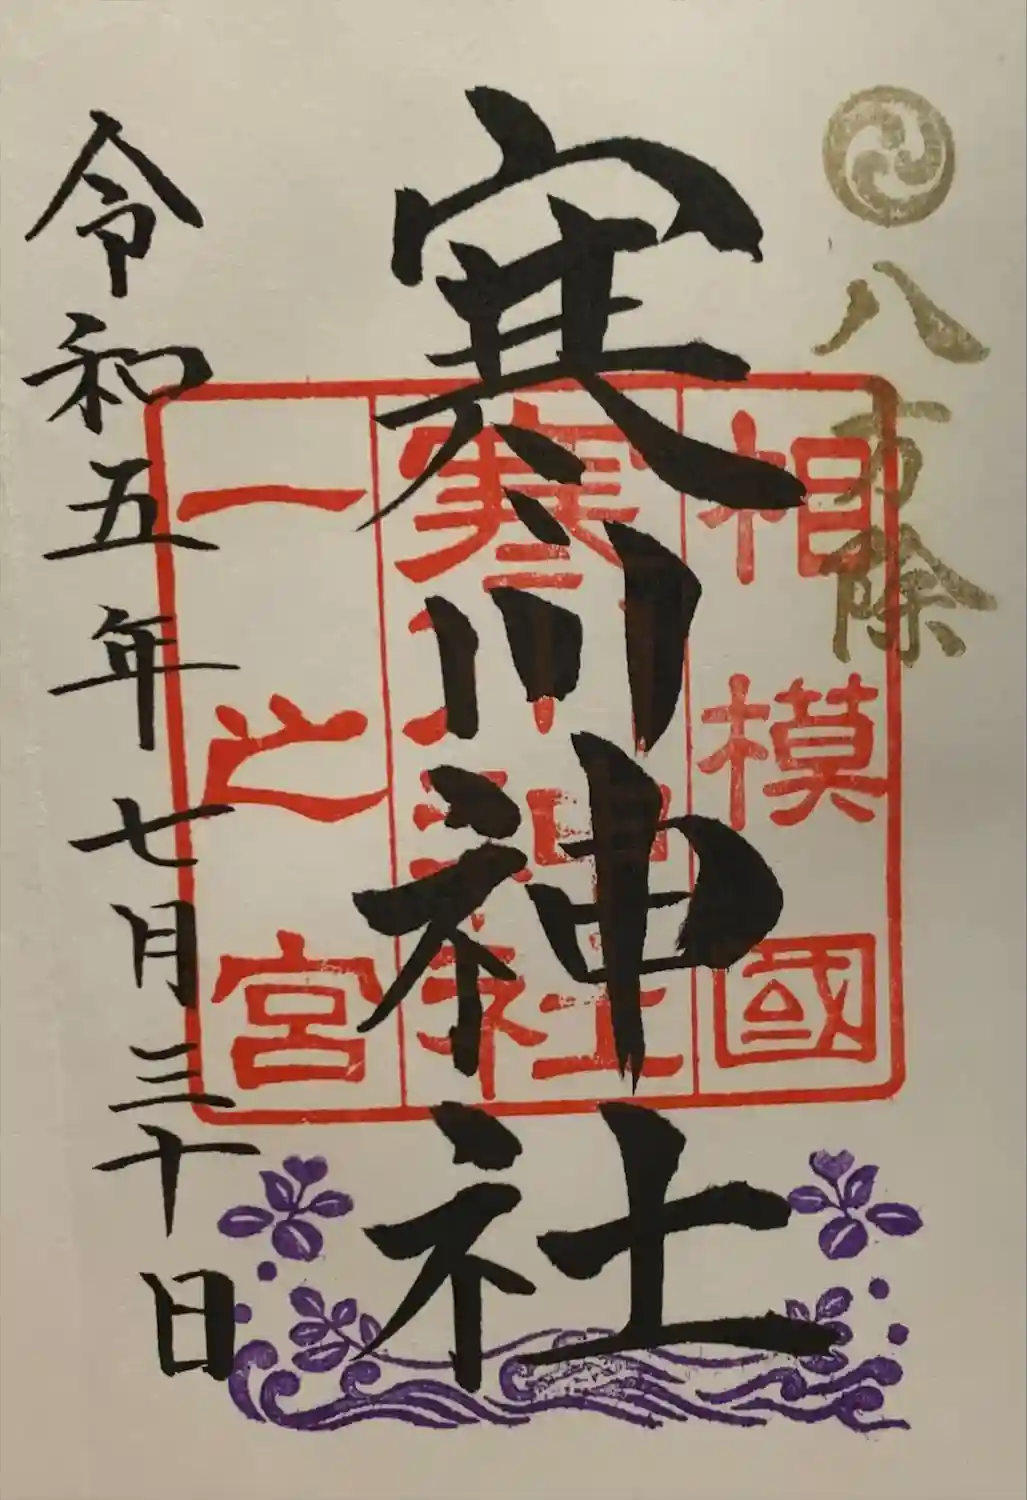 八方除
相模國
寒川神社
一之宮
寒川神社
令和五年七月三十日